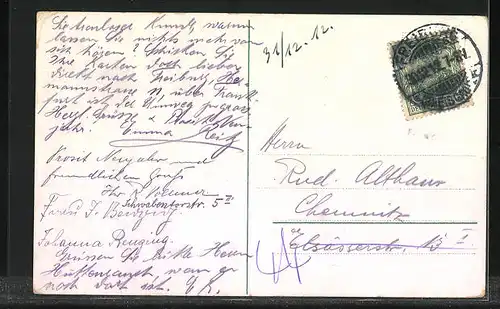 Sie treuloser Kunde, warum
lassen Sie nichts mehr von
sich hören? Schicken Sie
Ihre Karten doch lieber
direkt nach Freiburg, Her-
mannstrasse 11, über Frank-
furt ist der Umweg zu gross
Herzl. Grüsse & Neu-
jahr! Emma Reitz
Prosit Neujahr und
freundlichen Gruß
Ihr K. Vollmer
Schwabentorstr. 5 II
Frau J.
Johanna Renzing.
Grüssen Sie bitte Herrn
wenn er
noch dort ist. E. R.
31/12. 12.
FREIBURG
Herrn
Rud. Althaus
Chemnitz
Elsässerstr. 13 I